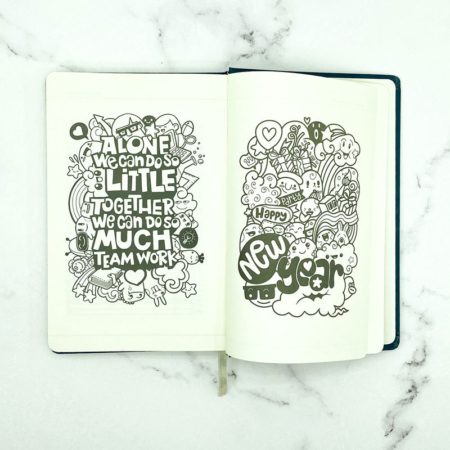 ALONE
We can Do So
LITTLE
TOGETHER
We can Do So
MUCH
TEAM WORK
Happy
New
year